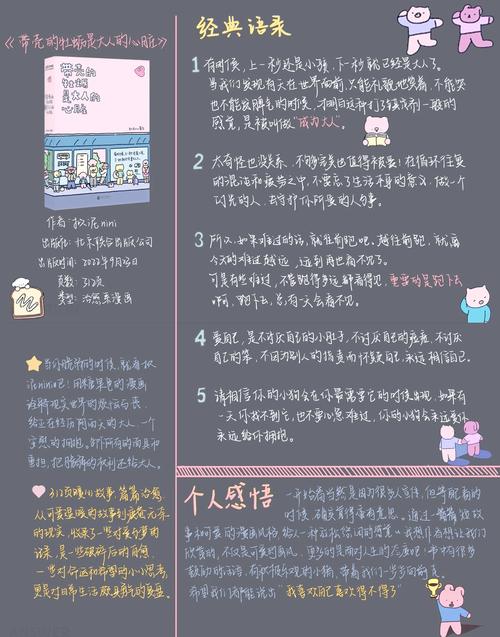 《带壳的牡蛎是大人的心脏》
带壳的
牡蛎
是大人的
心脏
作者:权泥nini
出版社:北京联合出版公司
出版时间:2022年9月
页数:312页
类型:治愈系漫画
经典语录
1 有时候,上一秒还是小孩,下一秒就已经是大人了。
当我们发现有天在世界面前,只能礼貌地笑着,不能哭
也不能发脾气的时候,才明白这种打了镇定剂一般的
感觉,是被叫做"成为大人"。
2 太有性也没关系,不够完美也值得被爱!在循环往复
的混沌和疲劳之中,不要忘了生活本身的意义,做一个
闪亮的人,去守护你所爱的人和事。
3 所以,如果难过的话,就往前跑吧。越往前跑,就离
今天的难过越远,远到再也看不见了。
可是有些难过,不管跑得多远都看得见,重要的是跑下去
啊,跑下去,总有一天会看不见。
4 爱自己,是不讨厌自己的小肚子,不讨厌自己的痘痘,不讨厌
自己的笨,不因为别人的指责而怀疑自己,永远相信自己。
5 请相信你的小狗会在你最需要它的时候出现,如果有
一天你找不到它,也不要心急难过,你的小狗会永远爱你
永远给你拥抱。
当你脆弱的时候,就看权
泥nini吧!用最简单的漫画
诠释现实世界的
给正在经历两面的大人,一个
字想的拥抱。卸下所有的面具和
重担,把脆弱的权利还给大人。
312页暖心故事,篇篇治愈,
从可爱温暖的故事到
的现实,收录了一些对爱与梦的
记录,是一些破碎后的自愈,
一些对命运和希望的小小思考,
更是对日常生活最具解药的
个人感悟
一开始看当然是因为很多人宣传,但等配看的
时候,确实算得蛮有意思。通过一篇篇的故
事和可爱的漫画风格给人一种放松舒困的感觉。我想作者想让我们
欣赏的,不仅是可爱的画风,更多的是面对人生的态度吧。书中有很多
鼓励的话语,有积极乐观的小狗,带着我们一步步向前走。
希望我们都能说出"我喜欢自己喜欢得不得了"